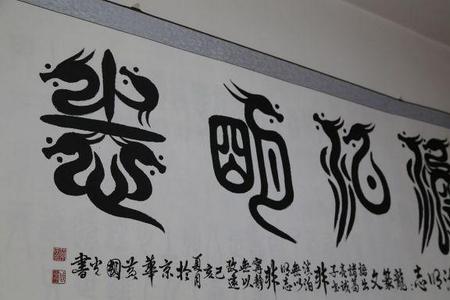 泊明志
泊明志龍篆文
語出諸葛亮誡子書
非淡泊無以明志
非寧靜無以致遠
己亥夏月於京華
書